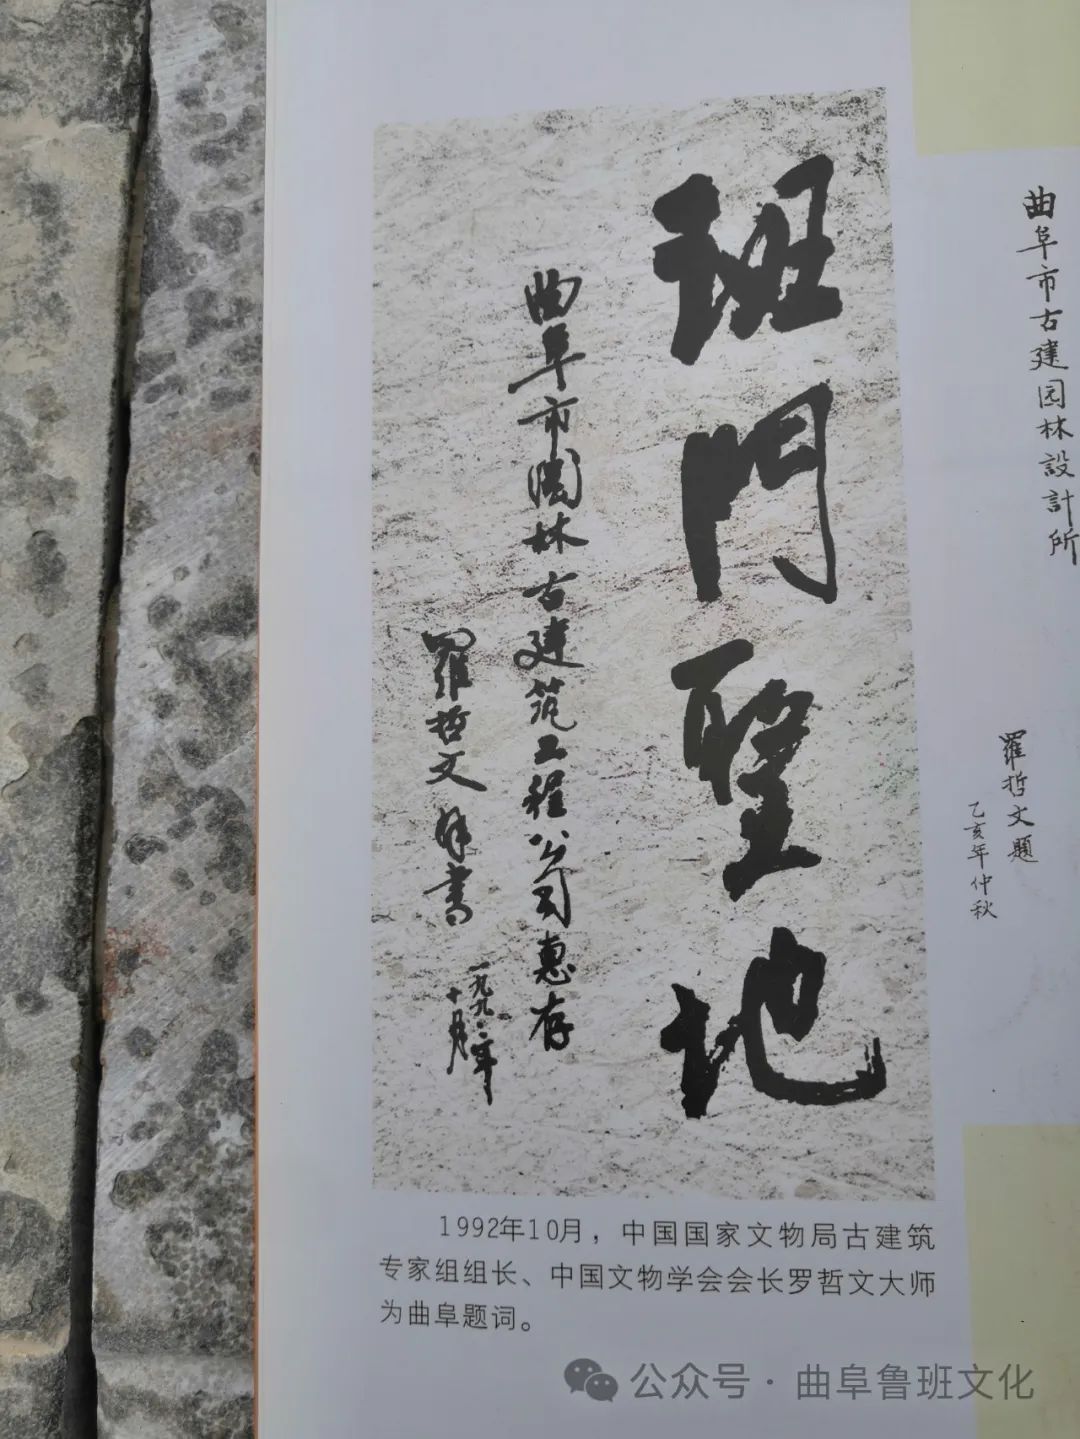 班門聖地
曲阜市園林古建筑工程公司惠存
羅哲文
書
一九九二年
十月
曲阜市古建园林設計所
羅哲文題
乙亥年仲秋
1992年10月，中国国家文物局古建筑
专家组组长、中国文物学会会长罗哲文大师
为曲阜题词。
公众号·曲阜鲁班文化